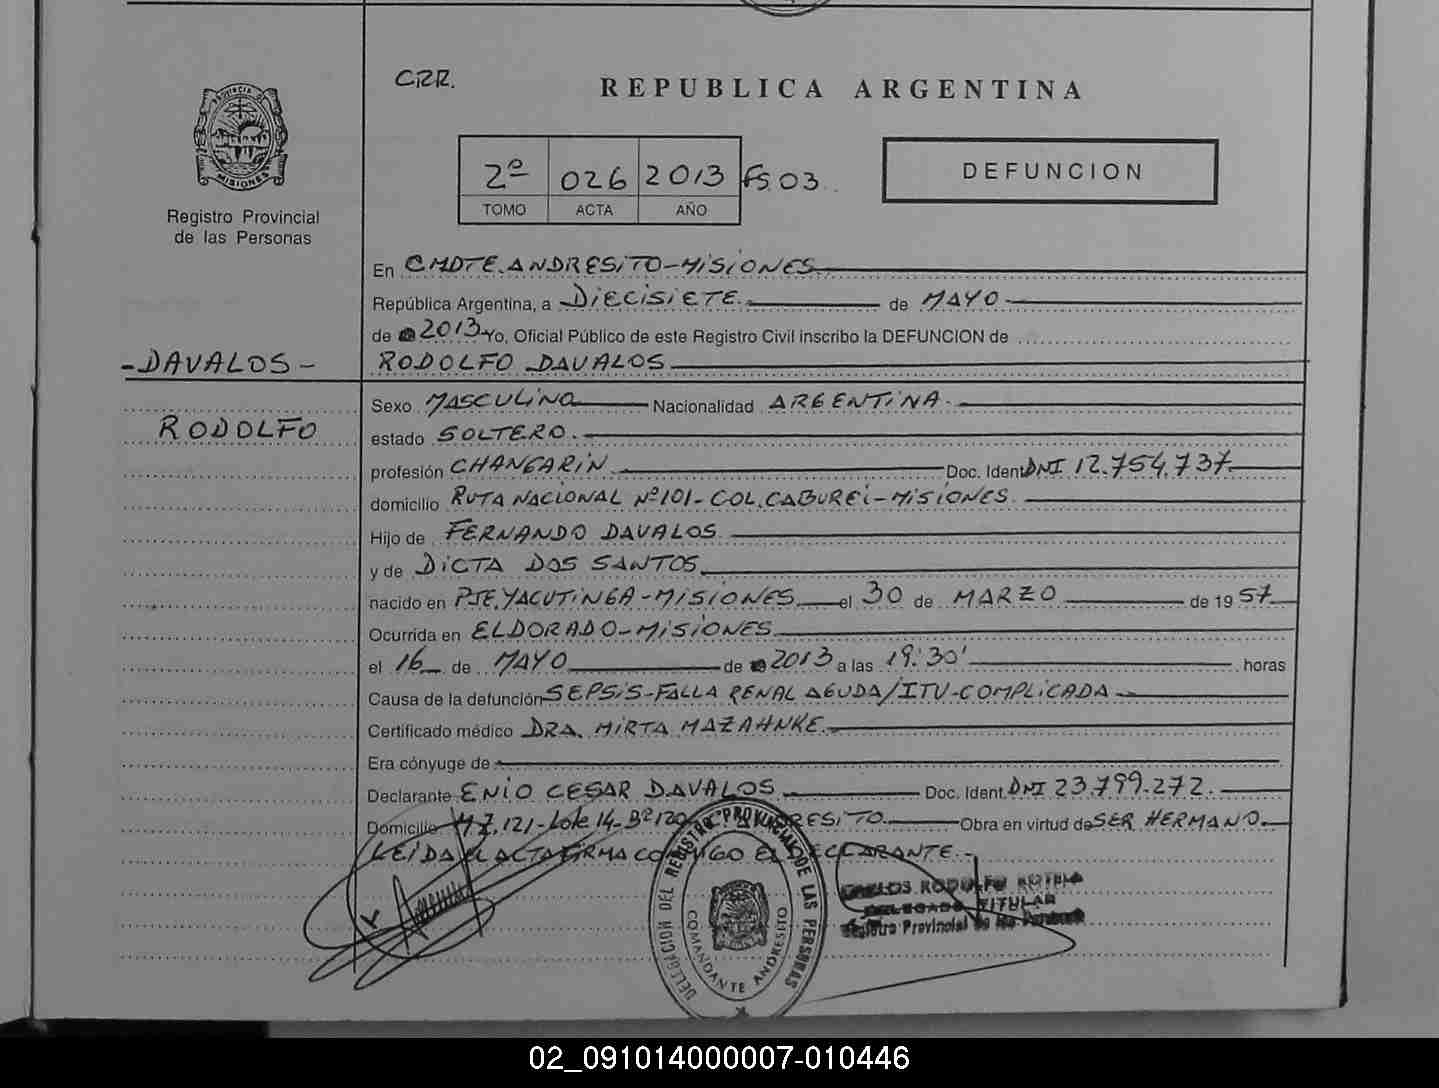 CRR.
REPUBLICA ARGENTINA
PROVINCIA DE
MISIONES
Registro Provincial
de las Personas
2º 026 2013 Fs. 03
TOMO ACTA AÑO
DEFUNCION
En CMDTE. ANDRESITO-MISIONES
República Argentina, a DIECISIETE de MAYO
de 2013 Yo, Oficial Público de este Registro Civil inscribo la DEFUNCION de
-DAVALOS-
RODOLFO
RODOLFO DAVALOS
Sexo MASCULINO Nacionalidad ARGENTINA.
estado SOLTERO.
profesión CHANGARIN. Doc. Ident. DNI 12.754.737
domicilio RUTA NACIONAL Nº101-COL.CABUREI-MISIONES.
Hijo de FERNANDO DAVALOS
y de DICTA DOS SANTOS
nacido en PTE.YACUTINGA-MISIONES el 30 de MARZO de 1957
Ocurrida en ELDORADO-MISIONES
el 16 de MAYO de 2013 a las 19:30' horas
Causa de la defunción SEPSIS-FALLA RENAL AGUDA/ITU-COMPLICADA
Certificado médico DRA. MIRTA MAZAHNKE.
Era cónyuge de
Declarante ENIO CESAR DAVALOS Doc. Ident. DNI 23.799.272.
Domicilio MZ.121-Lote 14-Bº120 Obra en virtud de SER HERMANO.
LEIDA EL ACTA FIRMA CONMIGO EL DECLARANTE.-
DELEGACION DEL REGISTRO PROVINCIAL DE LAS PERSONAS
COMANDANTE ANDRESITO
CARLOS RODOLFO
DELEGADO TITULAR
Registro Provincial de las Personas
02_091014000007-010446